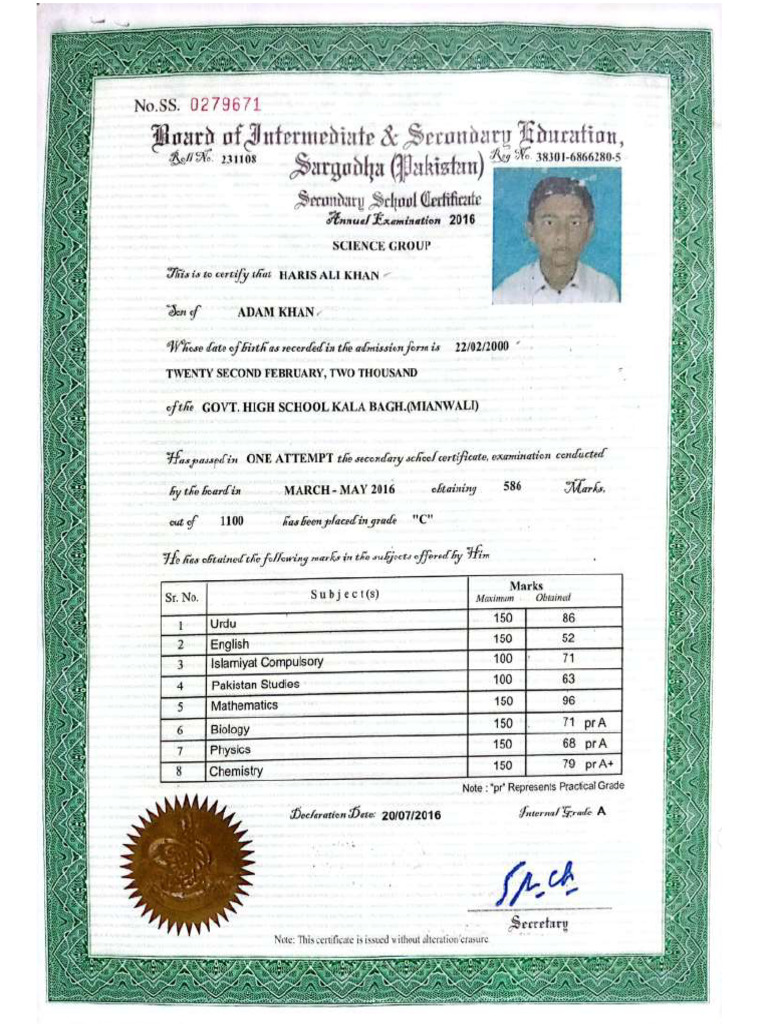 No.SS. 0279671
Board of Intermediate & Secondary Education,
Roll No. 231108
Sargodha (Pakistan)
Reg No. 38301-6866280-5
Secondary School Certificate
Annual Examination 2016
SCIENCE GROUP
This is to certify that HARIS ALI KHAN
Son of ADAM KHAN
Whose date of birth as recorded in the admission form is 22/02/2000
TWENTY SECOND FEBRUARY, TWO THOUSAND
of the GOVT. HIGH SCHOOL KALA BAGH.(MIANWALI)
Has passed in ONE ATTEMPT the secondary school certificate, examination conducted
by the board in MARCH - MAY 2016 obtaining 586 Marks,
out of 1100 has been placed in grade "C"
He has obtained the following marks in the subjects offered by Him
Sr. No. Subject(s) Marks
Maximum Obtained
1 Urdu 150 86
2 English 150 52
3 Islamiyat Compulsory 100 71
4 Pakistan Studies 100 63
5 Mathematics 150 96
6 Biology 150 71 pr A
7 Physics 150 68 pr A
8 Chemistry 150 79 pr A+
Note : "pr" Represents Practical Grade
Declaration Date: 20/07/2016 Internal Grade A
Secretary
Note: This certificate is issued without alteration/erasure